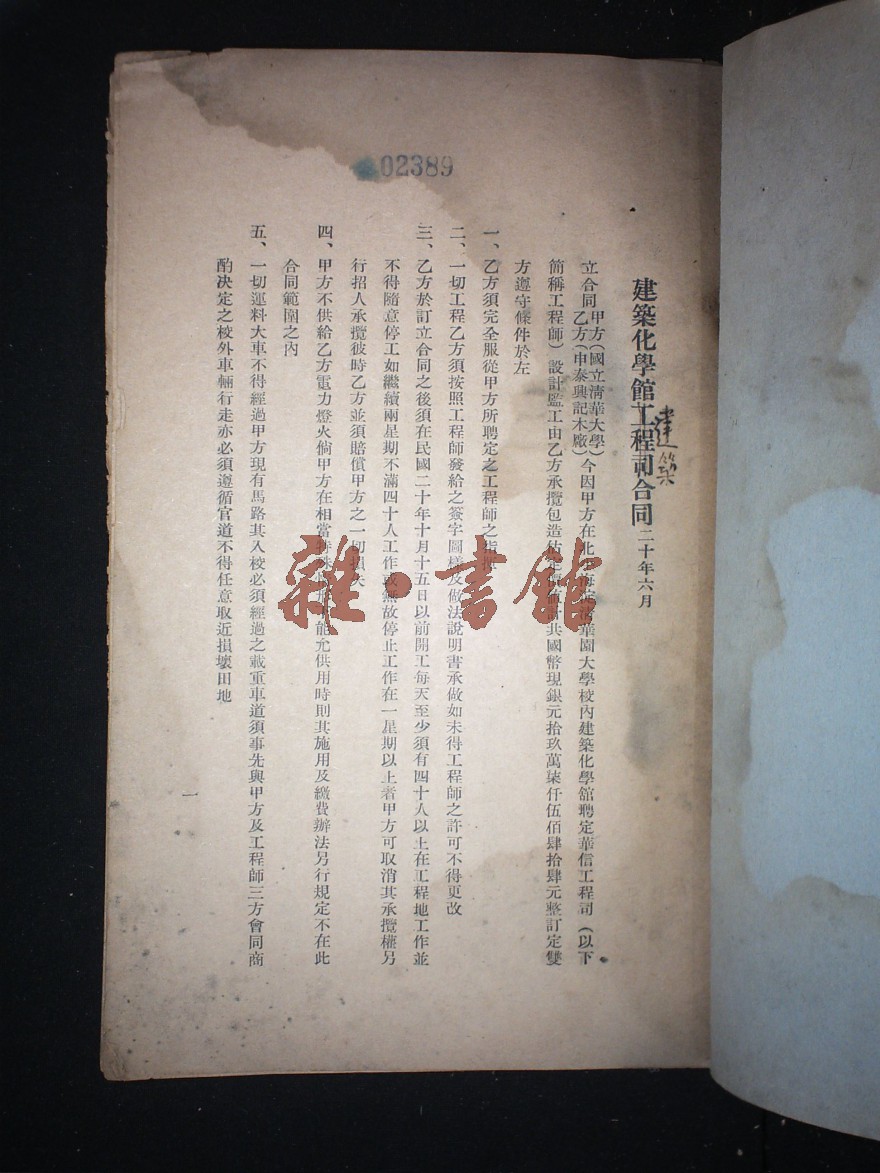 02389
建築化學館工程司合同 二十年六月
建築
立合同甲方(國立清華大學)乙方(申泰興記木廠)今因甲方在北海淀清華園大學校內建築化學館聘定華信工程司(以下
簡稱工程師)設計監工由乙方承攬包造估共國幣現銀元拾玖萬柒仟伍佰肆拾肆元整訂定雙
方遵守條件於左
一、乙方須完全服從甲方所聘定之工程師之指
二、一切工程乙方須按照工程師發給之簽字圖樣及做法說明書承做如未得工程師之許可不得更改
三、乙方於訂立合同之後須在民國二十年十月十五日以前開工每天至少須有四十人以上在工程地工作並
不得隨意停工如繼續兩星期不滿四十人工作或無故停止工作在一星期以上者甲方可取消其承攬權另
行招人承攬彼時乙方並須賠償甲方之一切損失
四、甲方不供給乙方電力燈火倘甲方在相當特殊能允供用時則其施用及繳費辦法另行規定不在此
合同範圍之內
五、一切運料大車不得經過甲方現有馬路其入校必須經過之載重車道須事先與甲方及工程師三方會同商
酌決定之校外車輛行走亦必須遵循官道不得任意取近損壞田地
一
雜·書館